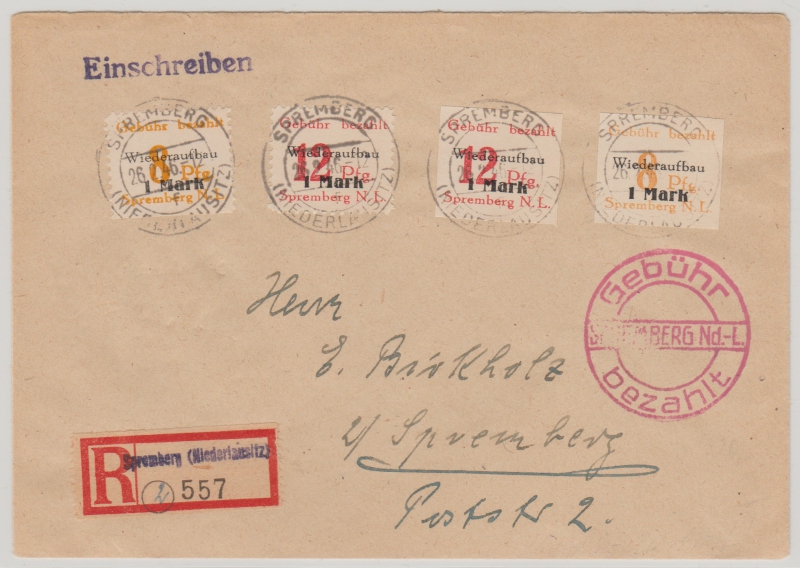 Einschreiben
SPREMBERG
(NIEDERLAUSITZ)
Gebühr bezahlt
Wiederaufbau
8 Pfg.
1 Mark
Spremberg N.L.
SPREMBERG
(NIEDERLAUSITZ)
Gebühr bezahlt
Wiederaufbau
12 Pfg.
1 Mark
Spremberg N.L.
SPREMBERG
(NIEDERLAUSITZ)
Gebühr bezahlt
Wiederaufbau
12 Pfg.
1 Mark
Spremberg N.L.
SPREMBERG
(NIEDERLAUSITZ)
Gebühr bezahlt
Wiederaufbau
8 Pfg.
1 Mark
Spremberg N.L.
Gebühr
SPREMBERG Nd.-L.
bezahlt
Herrn
E. Birkholz
2/ Spremberg
Poststr 2.
Spremberg (Niederlausitz)
R
2 557